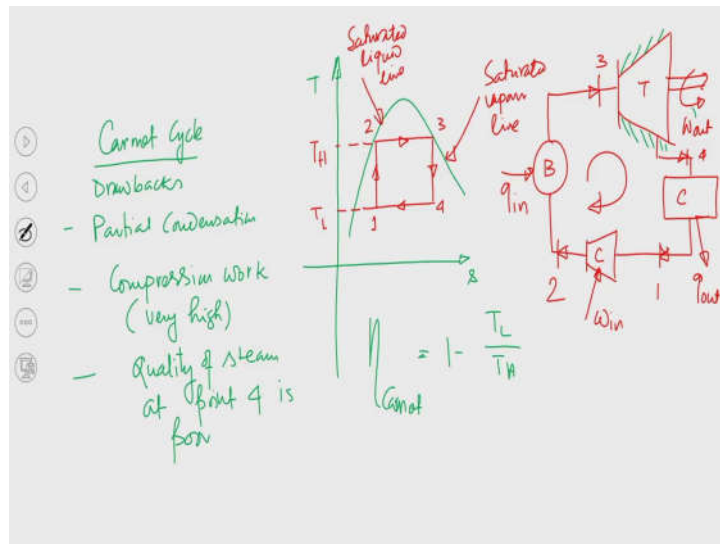 Carnot Cycle
Drawbacks
- Partial Condensation
- Compression work
(very high)
- Quality of steam
at point 4 is
poor
Saturated
liquid
line
Saturated
vapour
line
T
T_H
T_L
2
3
1
4
s
η_Carnot = 1 - T_L / T_H
3
T
Wout
4
B
q_in
C
C
2
1
q_out
w_in